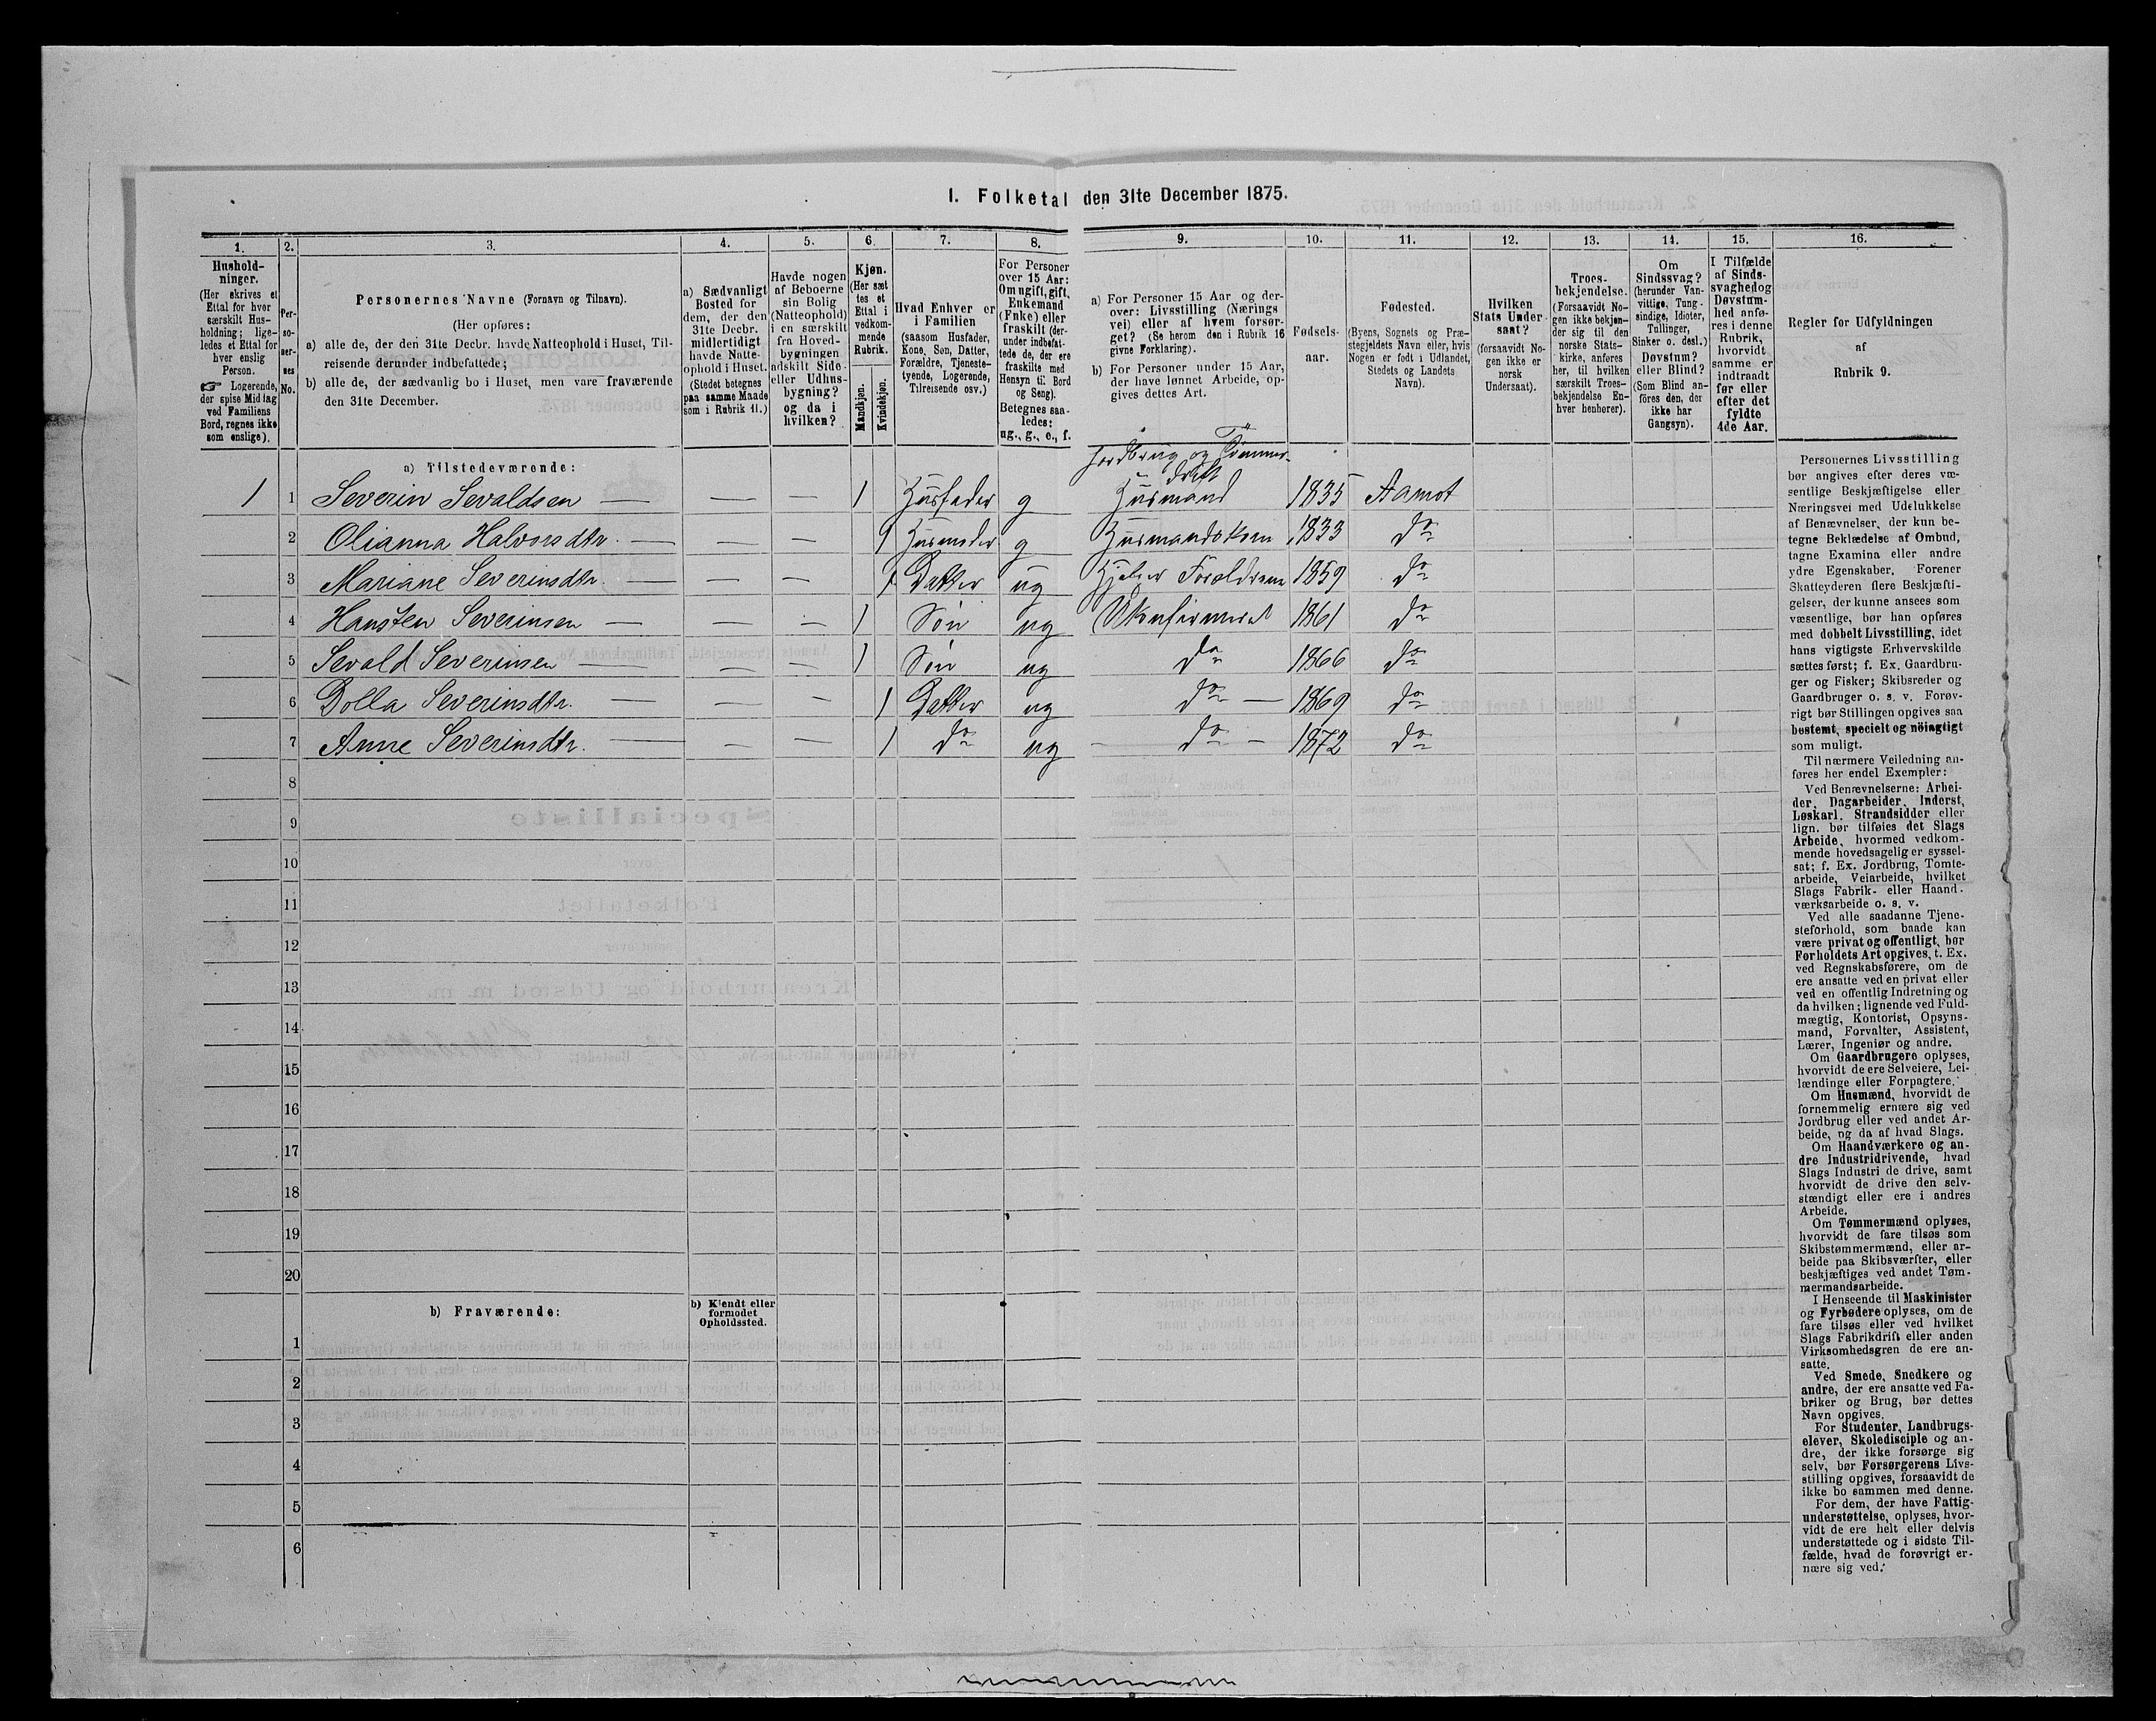 1. Folketal den 31te December 1875.
1. 2. 3. 4. 5. 6. 7. 8. 9. 10. 11. 12. 13. 14. 15. 16.
Hushold-
ninger.
(Her skrives et
Ettal for hver
særskilt Hus-
holdning; lige-
ledes et Ettal for
hver enslig
Person.
☞ Logerende,
der spise Middag
ved Familiens
Bord, regnes ikke
som enslige).
Per-
so-
ner-
nes
No.
Personernes Navne (Fornavn og Tilnavn).
(Her opføres:
a) alle de, der den 31te Decbr. havde Natteophold i Huset, Til-
reisende derunder indbefattede;
b) alle de, der sædvanlig bo i Huset, men vare fraværende
den 31te December.
a) Sædvanligt
Bosted for
dem, der den
31te Decbr.
midlertidigt
havde Natte-
ophold i Huset.
(Stedet betegnes
paa samme Maade
som i Rubrik 11.)
Havde nogen
af Beboerne
sin Bolig
(Natteophold)
i en særskilt
fra Hoved-
bygningen
adskilt Side-
eller Udhus-
bygning?
og da i
hvilken?
Kjøn.
(Her sæt
tes et
Ettal i
vedkom-
mende
Rubrik.
Mandkjøn.
Kvindekjøn.
Hvad Enhver er
i Familien
(saasom Husfader,
Kone, Søn, Datter,
Forældre, Tjeneste-
tyende, Logerende,
Tilreisende osv.)
For Personer
over 15 Aar:
Om ugift, gift,
Enkemand
(Enke) eller
fraskilt (der-
under indbefat-
tede de, der ere
fraskilte med
Hensyn til Bord
og Seng).
Betegnes saa-
ledes:
ug., g., e., f.
a) For Personer 15 Aar og der-
over: Livsstilling (Nærings
vei) eller af hvem forsør-
get? (Se herom den i Rubrik 16
givne Forklaring).
b) For Personer under 15 Aar,
der have lønnet Arbeide, op-
gives dettes Art.
Fødsels-
aar.
Fødested.
(Byens, Sognets og Præ-
stegjeldets Navn eller, hvis
Nogen er født i Udlandet,
Stedets og Landets
Navn).
Hvilken
Stats Under-
saat?
(forsaavidt No-
gen ikke er
norsk
Undersaat).
Troes-
bekjendelse.
(Forsaavidt No-
gen ikke bekjen-
der sig til den
norske Stats-
kirke, anføres
her, til hvilken
særskilt Troes-
bekjendelse En-
hver henhører).
Om
Sindssvag?
(herunder Van-
vittige, Tung-
sindige, Idioter,
Tullinger,
Sinker o. desl.)
Døvstum?
eller Blind?
(Som Blind an-
føres den, der
ikke har
Gangsyn).
I Tilfælde
af Sinds-
svaghed og
Døvstum-
hed anfø-
res i denne
Rubrik,
hvorvidt
samme er
indtraadt
før eller
efter det
fyldte
4de Aar.
Regler for Udfyldningen
af
Rubrik 9.
a) Tilstedeværende:
Jordbrug og Tømmer-
drift
1 1 Severin Sevaldsen — — — 1 Husfader g Husmand 1835 Aamot
2 Olianna Halvorsdtr. — — — 1 Husmoder g Husmandskone 1833 do
3 Mariane Severinsdtr. — — — 1 Datter ug Hjelper Forældrene 1859 do
4 Hansten Severinsen — — — 1 Søn ug Ukonfirmeret 1861 do
5 Sevald Severinsen — — — 1 Søn ug do 1866 do
6 Dolla Severinsdtr. — — — 1 Datter ug do — 1869 do
7 Anne Severinsdtr. — — — 1 do ug — do — 1872 do
8
9
10
11
12
13
14
15
16
17
18
19
20
b) Fraværende:
b) Kjendt eller
formodet
Opholdssted.
1
2
3
4
5
6
Personernes Livsstilling
bør angives efter deres væ-
sentlige Beskjæftigelse eller
Næringsvei med Udelukkelse
af Benævnelser, der kun be-
tegne Beklædelse af Ombud,
tagne Examina eller andre
ydre Egenskaber. Forener
Skatteyderen flere Beskjæfti-
gelser, der kunne ansees som
væsentlige, bør han opføres
med dobbelt Livsstilling, idet
hans vigtigste Erhvervskilde
sættes først; f. Ex. Gaardbru-
ger og Fisker; Skibsreder og
Gaardbruger o. s. v. Forøv-
rigt bør Stillingen opgives saa
bestemt, specielt og nöiagtigt
som muligt.
Til nærmere Veiledning an-
føres her endel Exempler:
Ved Benævnelserne: Arbei-
der, Dagarbeider, Inderst,
Løskarl, Strandsidder eller
lign. bør tilføies det Slags
Arbeide, hvormed vedkom-
mende hovedsagelig er syssel-
sat; f. Ex. Jordbrug, Tomte-
arbeide, Veiarbeide, hvilket
Slags Fabrik- eller Haand-
værksarbeide o. s. v.
Ved alle saadanne Tjene-
steforhold, som baade kan
være privat og offentligt, bør
Forholdets Art opgives, t. Ex.
ved Regnskabsførere, om de
ere ansatte ved en privat eller
ved en offentlig Indretning og
da hvilken; lignende ved Fuld-
mægtig, Kontorist, Opsyns-
mand, Forvalter, Assistent,
Lærer, Ingeniør og andre.
Om Gaardbrugere oplyses,
hvorvidt de ere Selveiere, Lei-
lændinge eller Forpagtere.
Om Husmænd, hvorvidt de
fornemmelig ernære sig ved
Jordbrug eller ved andet Ar-
beide, og da af hvad Slags.
Om Haandværkere og an-
dre Industridrivende, hvad
Slags Industri de drive, samt
hvorvidt de drive den selv-
stændigt eller ere i andres
Arbeide.
Om Tømmermænd oplyses,
hvorvidt de fare tilsøs som
Skibstømmermænd, eller ar-
beide paa Skibsværfter, eller
beskjæftiges ved andet Tøm-
mermandsarbeide.
I Henseende til Maskinister
og Fyrbødere oplyses, om de
fare tilsøs eller ved hvilket
Slags Fabrikdrift eller anden
Virksomhedsgren de ere an-
satte.
Ved Smede, Snedkere og
andre, der ere ansatte ved Fa-
briker og Brug, bør dettes
Navn opgives.
For Studenter, Landbrugs-
elever, Skoledisciple og an-
dre, der ikke forsørge sig
selv, bør Forsørgerens Livs-
stilling opgives, forsaavidt de
ikke bo sammen med denne.
For dem, der have Fattig-
understøttelse, oplyses, hvor-
vidt de ere helt eller delvis
understøttede og i sidste Til-
fælde, hvad de forøvrigt er-
nære sig ved.